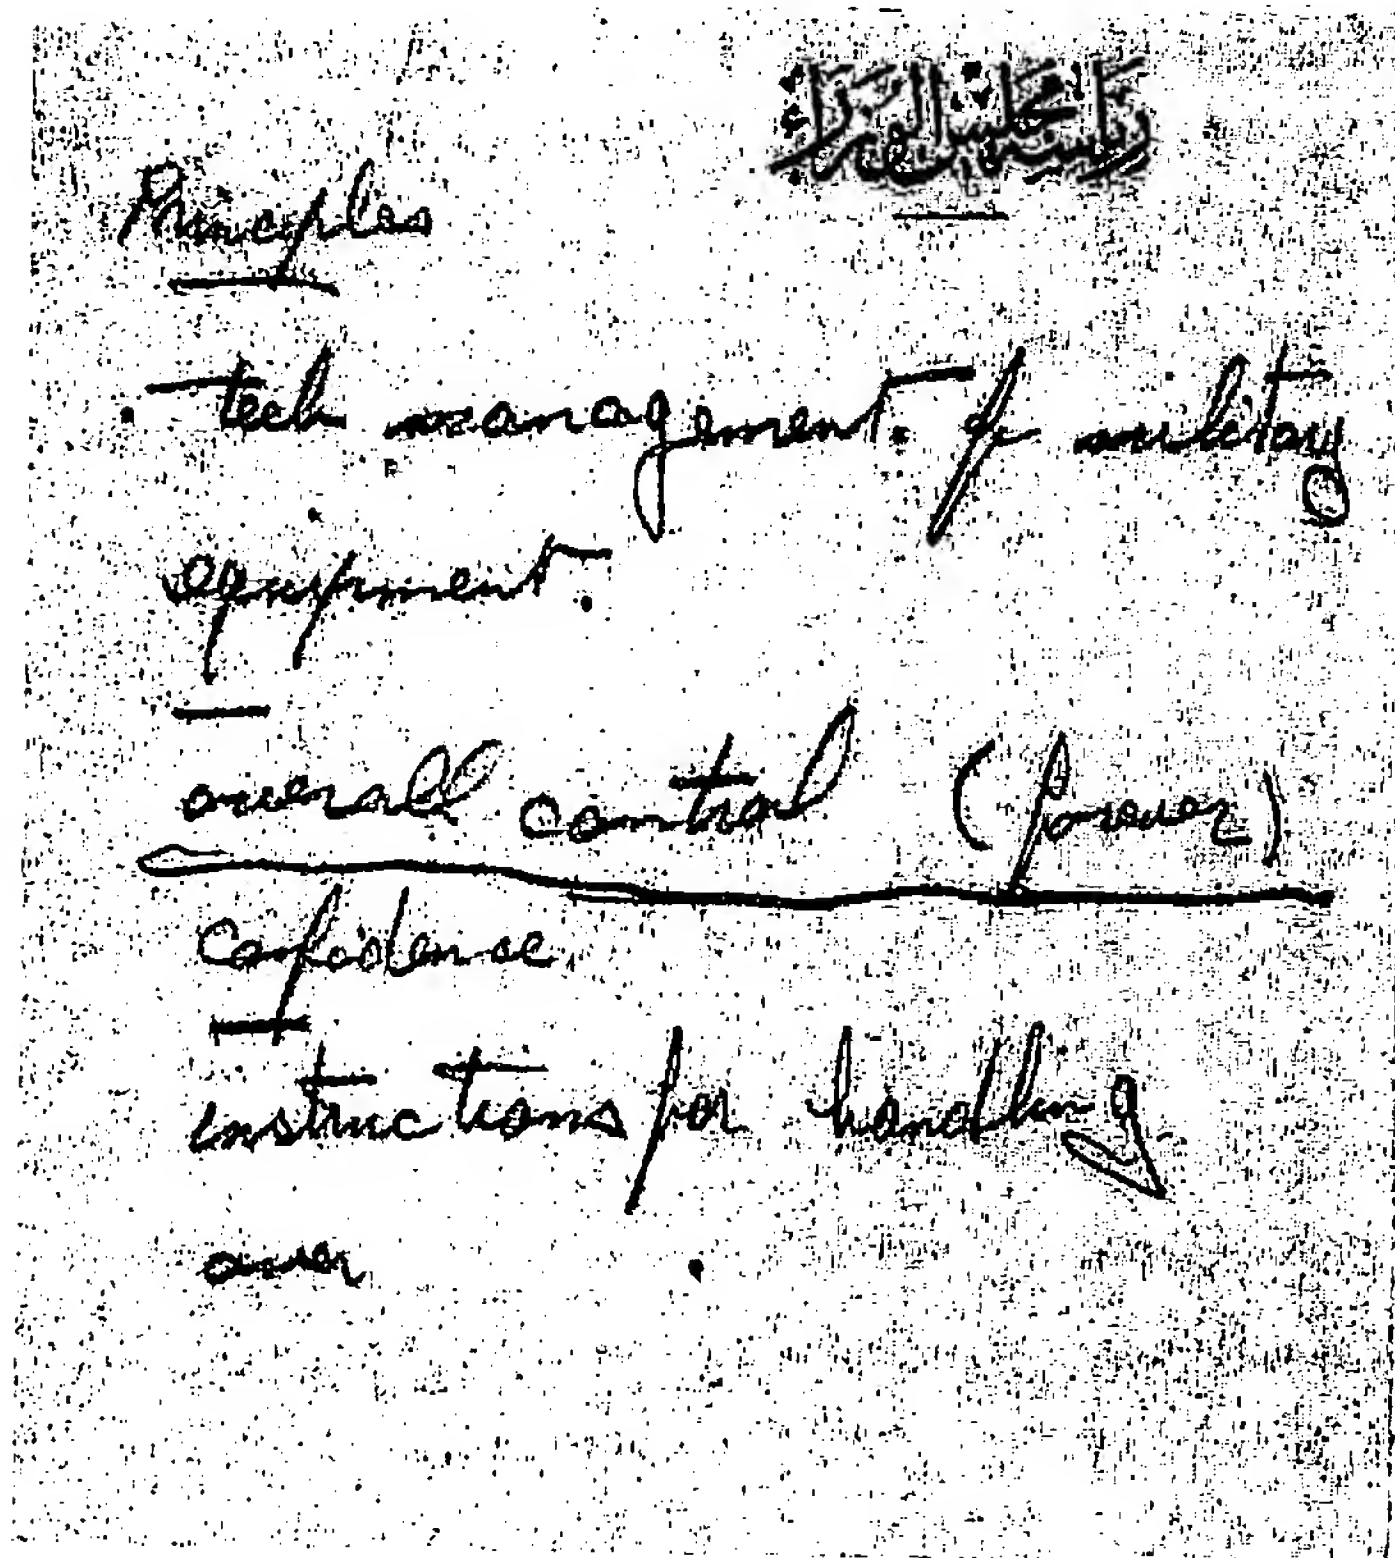 رياسة مجلس الوزراء
Principles
. Tech management. of military
equipment.
overall control (forever)
Confidence
instructions for handling
over